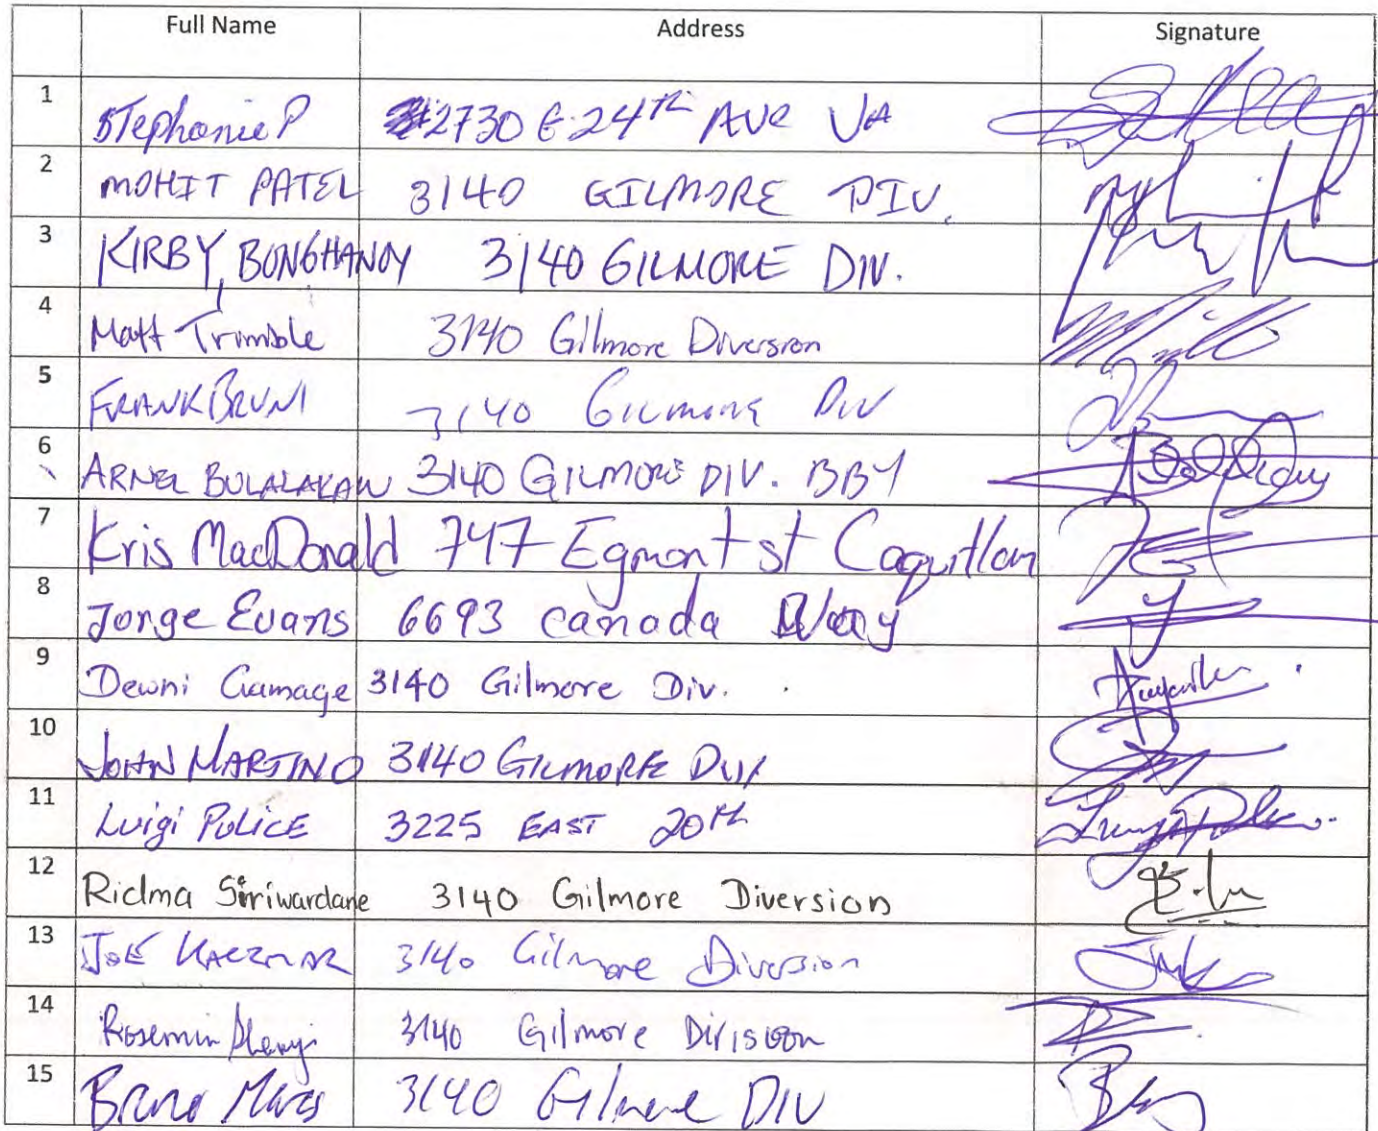 Full Name Address Signature
1 Stephanie P 2730 E 24th Ave VA
2 MOHIT PATEL 3140 GILMORE DIV.
3 KIRBY BONGHANOY 3140 GILMORE DIV.
4 Matt Trimble 3140 Gilmore Diversion
5 FRANK BRUNI 3140 GILMORE DIV
6 ARNEL BULALAKAW 3140 GILMORE DIV. BBY
7 Kris MacDonald 747 Egmont st Coquitlam
8 Jorge Evans 6693 canada Way
9 Dewni Gamage 3140 Gilmore Div.
10 JOHN MARTINO 3140 GILMORE DIV
11 Luigi POLICE 3225 EAST 20th
12 Ridma Siriwardane 3140 Gilmore Diversion
13 JOE KACZMAR 3140 Gilmore Diversion
14 Rosemin 3140 Gilmore Division
15 Bruno 3140 Gilmore DIV